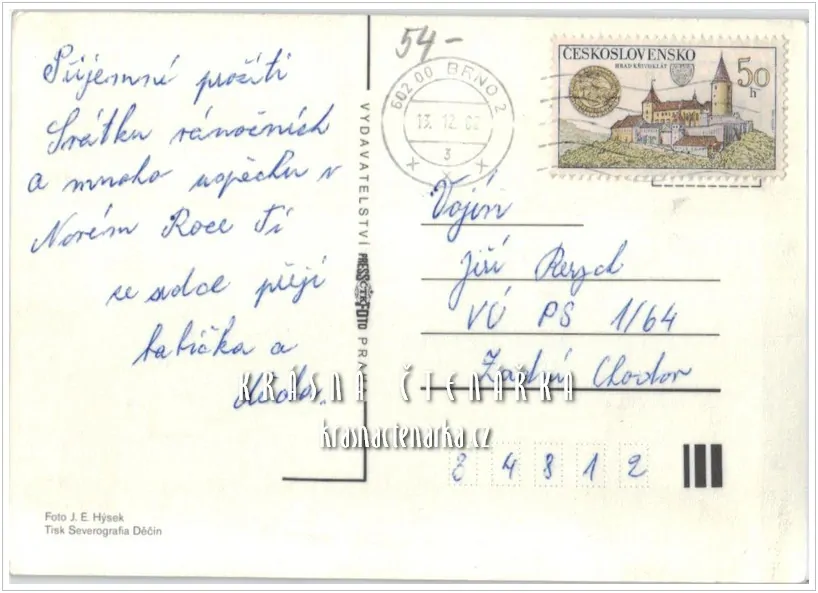 54-
ČESKOSLOVENSKO
HRAD KŘIVOKLÁT
50
h
602 00 BRNO 2
13.12.82
3
Příjemné prožití
Svátků vánočních
a mnoho úspěchu v
Novém Roce Ti
ze srdce přejí
babička a
děda.
VYDAVATELSTVÍ PRESSFOTO PRAHA
Vojín
Jiří
VÚ PS 1/64
Zadní Chodov
34812
KRÁSNÁ ČTENÁŘKA
krasnactenarka.cz
Foto J. E. Hýsek
Tisk Severografia Děčín